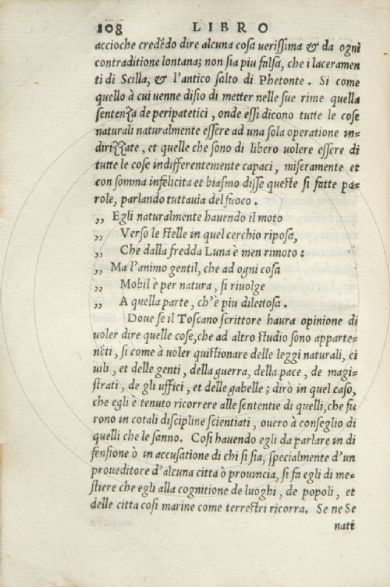 108 LIBRO
accioche credẽdo dire alcuna cosa uerissima & da ogni
contraditione lontana; non sia piu falsa, che i laceramen
ti di Scilla, & l'antico salto di Phetonte. Si come
quello à cui uenne disio di metter nelle sue rime quella
sentenza de peripatetici, onde essi dicono tutte le cose
naturali naturalmente essere ad una sola operatione in-
dirizzate, et quelle che sono di libero uolere essere di
tutte le cose indifferentemente capaci, miseramente et
con somma infelicita et biasmo disse queste si fatte pa-
role, parlando tuttauia del fuoco.
„ Egli naturalmente hauendo il moto
„ Verso le stelle in quel cerchio riposa,
„ Che dalla fredda Luna è men rimoto:
„ Ma l'animo gentil, che ad ogni cosa
„ Mobil è per natura, si riuolge
„ A quella parte, ch'è piu dilettosa.
Doue se il Toscano scrittore haura opinione di
uoler dire quelle cose, che ad altro studio sono apparte-
nẽti, si come à uoler quistionare delle leggi naturali, ci
uili, et delle genti, della guerra, della pace, de magi-
strati, de gli uffici, et delle gabelle; dirò in quel caso,
che egli è tenuto ricorrere alle sententie di quelli, che fu
rono in cotali discipline scientiati, ouero à conseglio di
quelli che le sanno. Cosi hauendo egli da parlare in di
fensione ò in accusatione di chi si sia, specialmente d'un
proueditore d'alcuna citta ò prouincia, si fa egli di me-
stiere che egli alla cognitione de luoghi, de popoli, et
delle citta cosi marine come terrestri ricorra. Se ne Se
nati